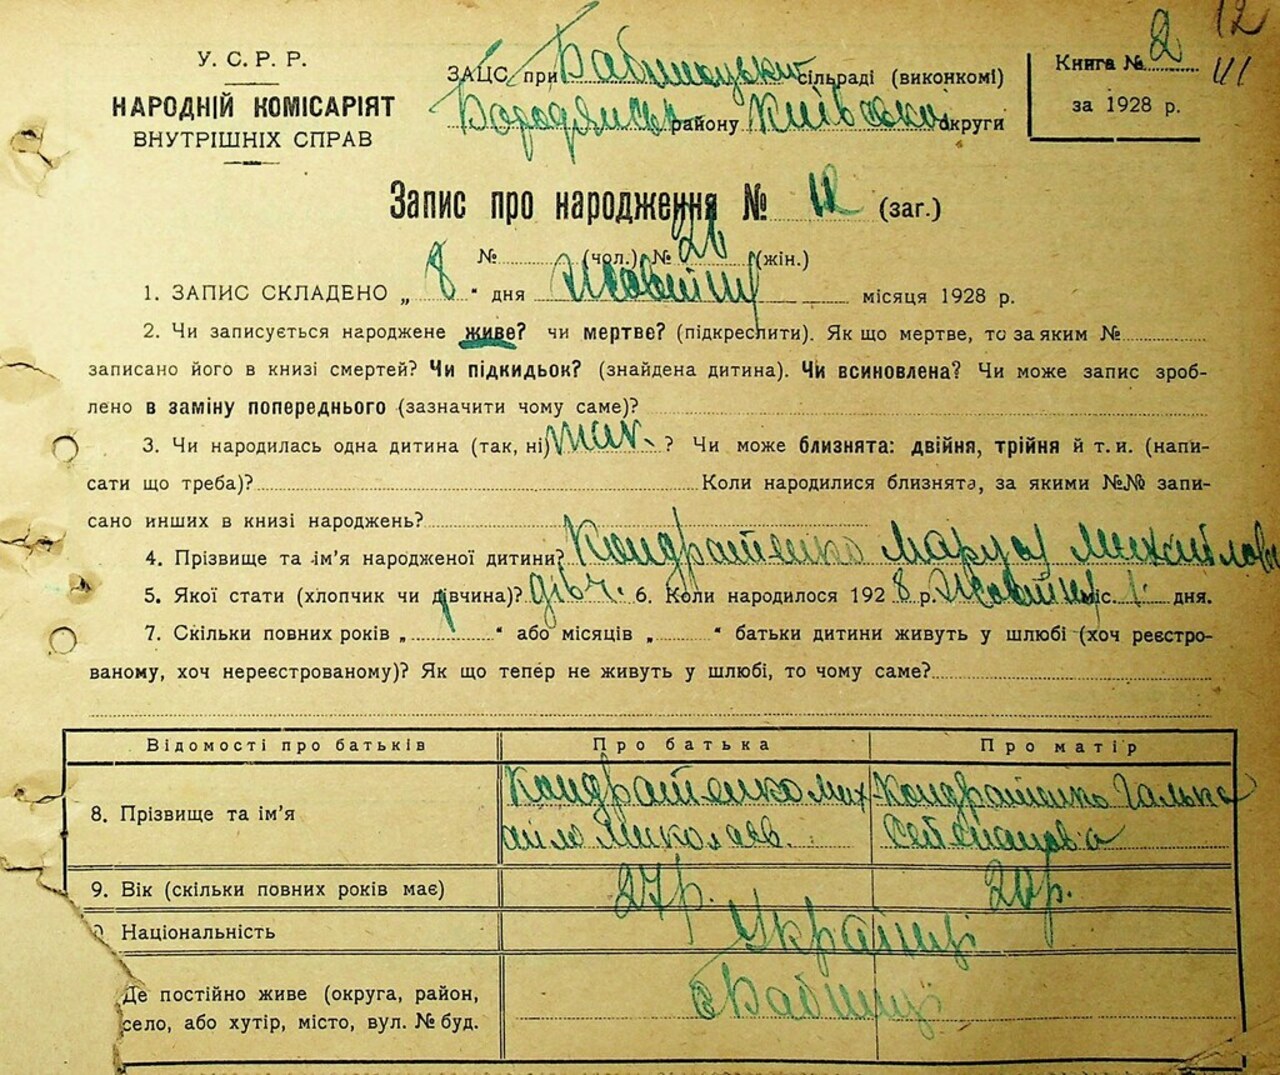 12
У. С. Р. Р.
НАРОДНІЙ КОМІСАРІЯТ
ВНУТРІШНІХ СПРАВ
ЗАЦС при Бабинецькій сільраді (виконкомі)
Бородянськ району Київської округи
Книга № 2
за 1928 р.
Запис про народження № 12 (заг.)
№ (чол.) № (жін.)
1. ЗАПИС СКЛАДЕНО „ 8 “ дня Жовтня місяця 1928 р.
2. Чи записується народжене живе? чи мертве? (підкреслити). Як що мертве, то за яким №
записано його в книзі смертей? Чи підкидьок? (знайдена дитина). Чи всиновлена? Чи може запис зроб-
лено в заміну попереднього (зазначити чому саме)?
3. Чи народилась одна дитина (так, ні) так. ? Чи може близнята: двійня, трійня й т. и. (напи-
сати що треба)? Коли народилися близнята, за якими №№ запи-
сано инших в книзі народжень?
4. Прізвище та ім’я народженої дитини? Кондратенко Маруся Михайлова
5. Якої стати (хлопчик чи дівчина)? дівч. 6. Коли народилося 192 8 р. Жовтня міс. 1. дня.
7. Скільки повних років „ “ або місяців „ “ батьки дитини живуть у шлюбі (хоч реєстро-
ваному, хоч нереєстрованому)? Як що тепер не живуть у шлюбі, то чому саме?
Відомості про батьків Про батька Про матір
8. Прізвище та ім’я Кондратенко Мих Кондратенко Галька
айло Миколаєв. Степанова
9. Вік (скільки повних років має) 27 р. 20 р.
Національність Українці
Де постійно живе (округа, район,
село, або хутір, місто, вул. № буд. с Бабинці